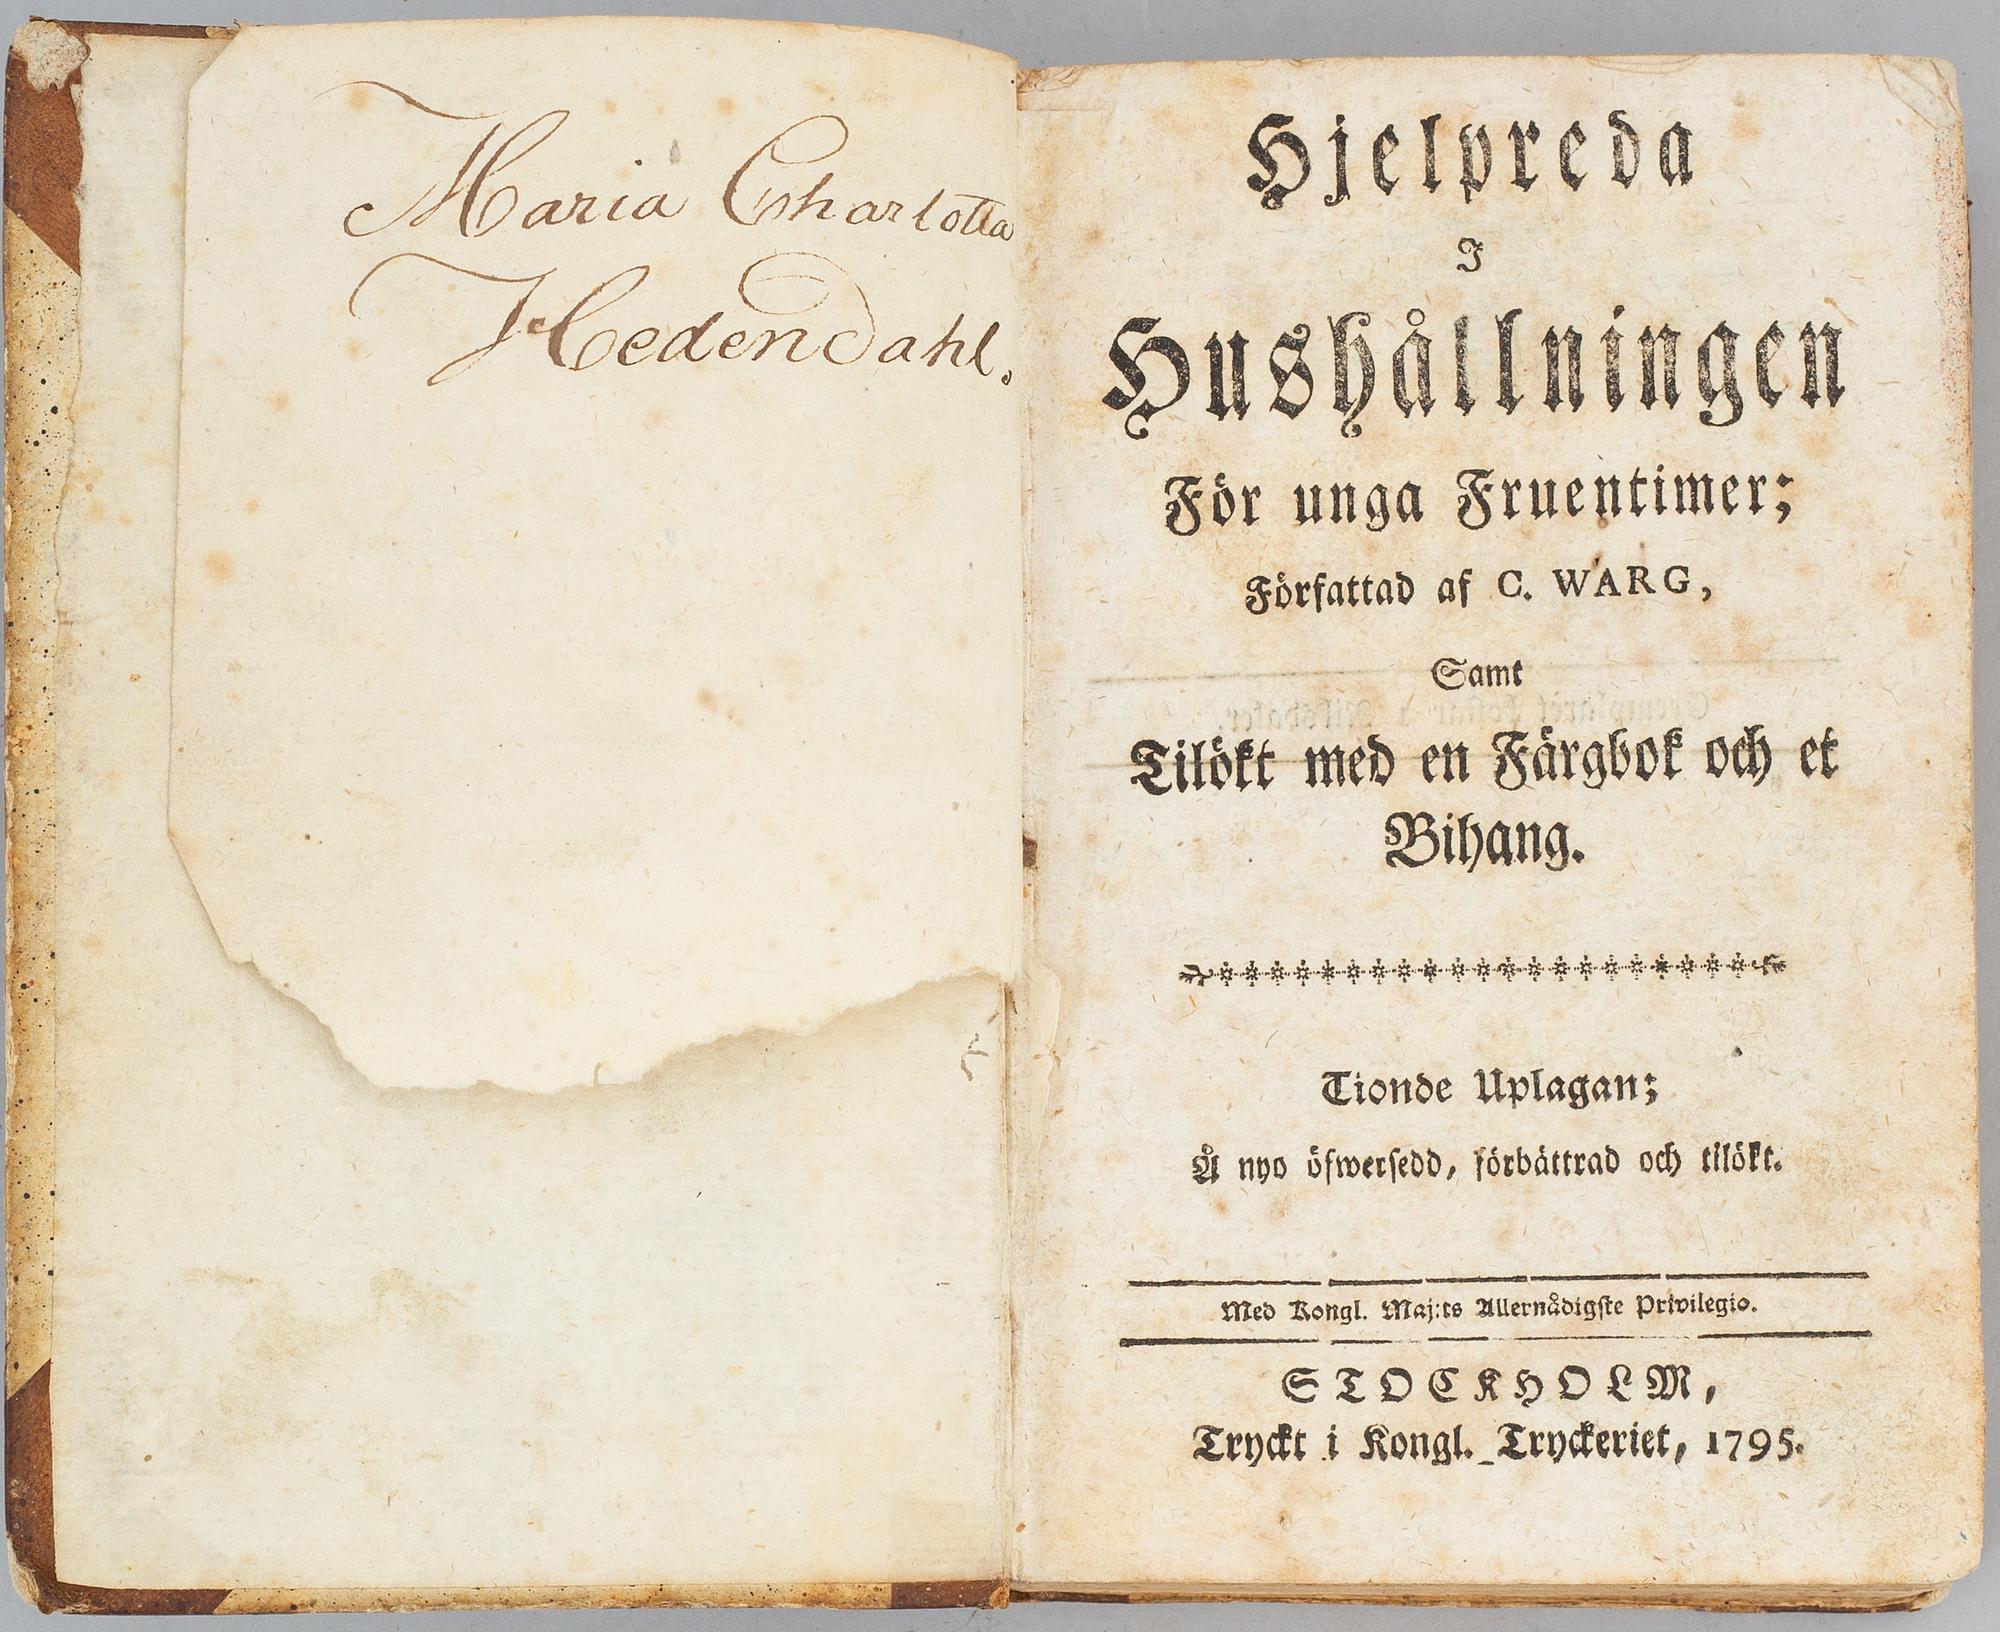 Maria Charlotta
Hedendahl.
Hjelpreda
I
Hushållningen
För unga Fruentimer;
Författad af C. WARG,
Samt
Tilökt med en Färgbok och et
Bihang.
Tionde Uplagan;
Å nyo öfwersedd, förbättrad och tilökt.
Med Kongl. Maj:ts Allernådigste Privilegio.
STOCKHOLM,
Tryckt i Kongl. Tryckeriet, 1795.